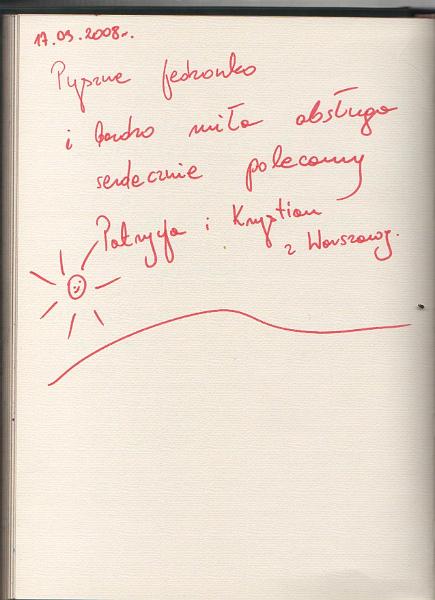 17.09.2008r.
Pyszne jedzonko
i bardzo miła obsługa
serdecznie polecamy
Patrycja i Krystian
z Warszawy.